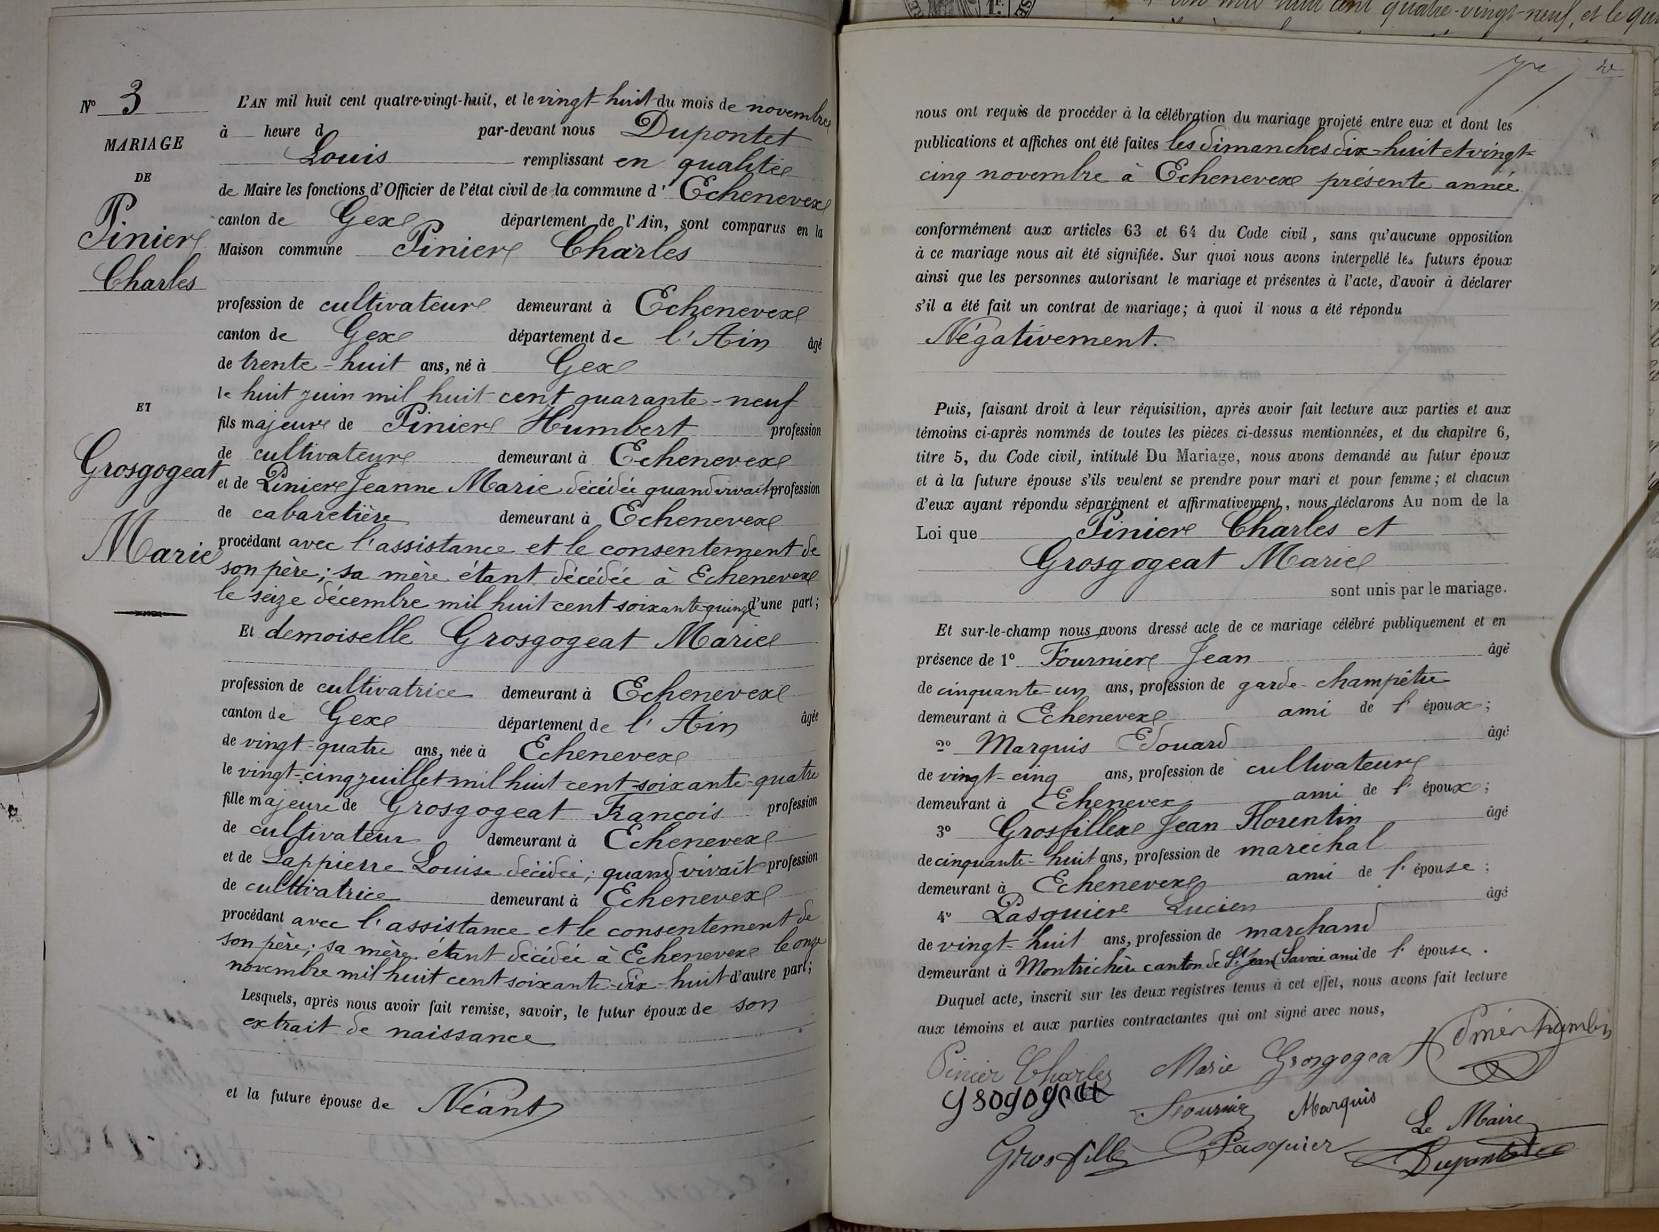 N° 3
MARIAGE
DE
Pinier
Charles
ET
Grosgogeat
Marie
L'AN mil huit cent quatre-vingt-huit, et le vingt-huit du mois de novembre
à heure d par-devant nous Dupontet
Louis remplissant en qualitée
de Maire les fonctions d'Officier de l'état civil de la commune d' Echenevex
canton de Gex département de l'Ain, sont comparus en la
Maison commune Pinier Charles
profession de cultivateur demeurant à Echenevex
canton de Gex département de l'Ain âgé
de trente-huit ans, né à Gex
le huit juin mil huit cent quarante-neuf
fils majeur de Pinier Humbert profession
de cultivateur demeurant à Echenevex
et de Pinier Jeanne Marie décédée quand vivait profession
de cabaretière demeurant à Echenevex
procédant avec l'assistance et le consentement de
son père; sa mère étant décédée à Echenevex
le seize décembre mil huit cent soixante quinze d'une part;
Et demoiselle Grosgogeat Marie
profession de cultivatrice demeurant à Echenevex
canton de Gex département de l'Ain âgée
de vingt-quatre ans, née à Echenevex
le vingt-cinq juillet mil huit cent soixante-quatre
fille majeure de Grosgogeat François profession
de cultivateur demeurant à Echenevex
et de Lappierre Louise décédée; quand vivait profession
de cultivatrice demeurant à Echenevex
procédant avec l'assistance et le consentement de
son père; sa mère étant décédée à Echenevex le onze
novembre mil huit cent soixante-dix-huit d'autre part;
Lesquels, après nous avoir fait remise, savoir, le futur époux de son
extrait de naissance
et la future épouse de Néant
nous ont requis de procéder à la célébration du mariage projeté entre eux et dont les
publications et affiches ont été faites les dimanches dix-huit et vingt-
cinq novembre à Echenevex présente année
conformément aux articles 63 et 64 du Code civil, sans qu'aucune opposition
à ce mariage nous ait été signifiée. Sur quoi nous avons interpellé les futurs époux
ainsi que les personnes autorisant le mariage et présentes à l'acte, d'avoir à déclarer
s'il a été fait un contrat de mariage; à quoi il nous a été répondu
Négativement.
Puis, faisant droit à leur réquisition, après avoir fait lecture aux parties et aux
témoins ci-après nommés de toutes les pièces ci-dessus mentionnées, et du chapitre 6,
titre 5, du Code civil, intitulé Du Mariage, nous avons demandé au futur époux
et à la future épouse s'ils veulent se prendre pour mari et pour femme; et chacun
d'eux ayant répondu séparément et affirmativement, nous déclarons Au nom de la
Loi que Pinier Charles et
Grosgogeat Marie
sont unis par le mariage.
Et sur-le-champ nous avons dressé acte de ce mariage célébré publiquement et en
présence de 1° Fournier Jean âgé
de cinquante-un ans, profession de garde-champêtre
demeurant à Echenevex ami de l'époux;
2° Marquis Edouard âgé
de vingt-cinq ans, profession de cultivateur
demeurant à Echenevex ami de l'époux;
3° Grosfillex Jean Florentin âgé
de cinquante-huit ans, profession de maréchal
demeurant à Echenevex ami de l'épouse;
4° Pasquier Lucien âgé
de vingt-huit ans, profession de marchand
demeurant à Montricher canton de St Jean Savoie ami de l'épouse.
Duquel acte, inscrit sur les deux registres tenus à cet effet, nous avons fait lecture
aux témoins et aux parties contractantes qui ont signé avec nous,
Pinier Charles Marie Grosgogeat Pinier Humbert
Grogogeat Fournier Marquis Le Maire
Grosfillex Pasquier Dupontet